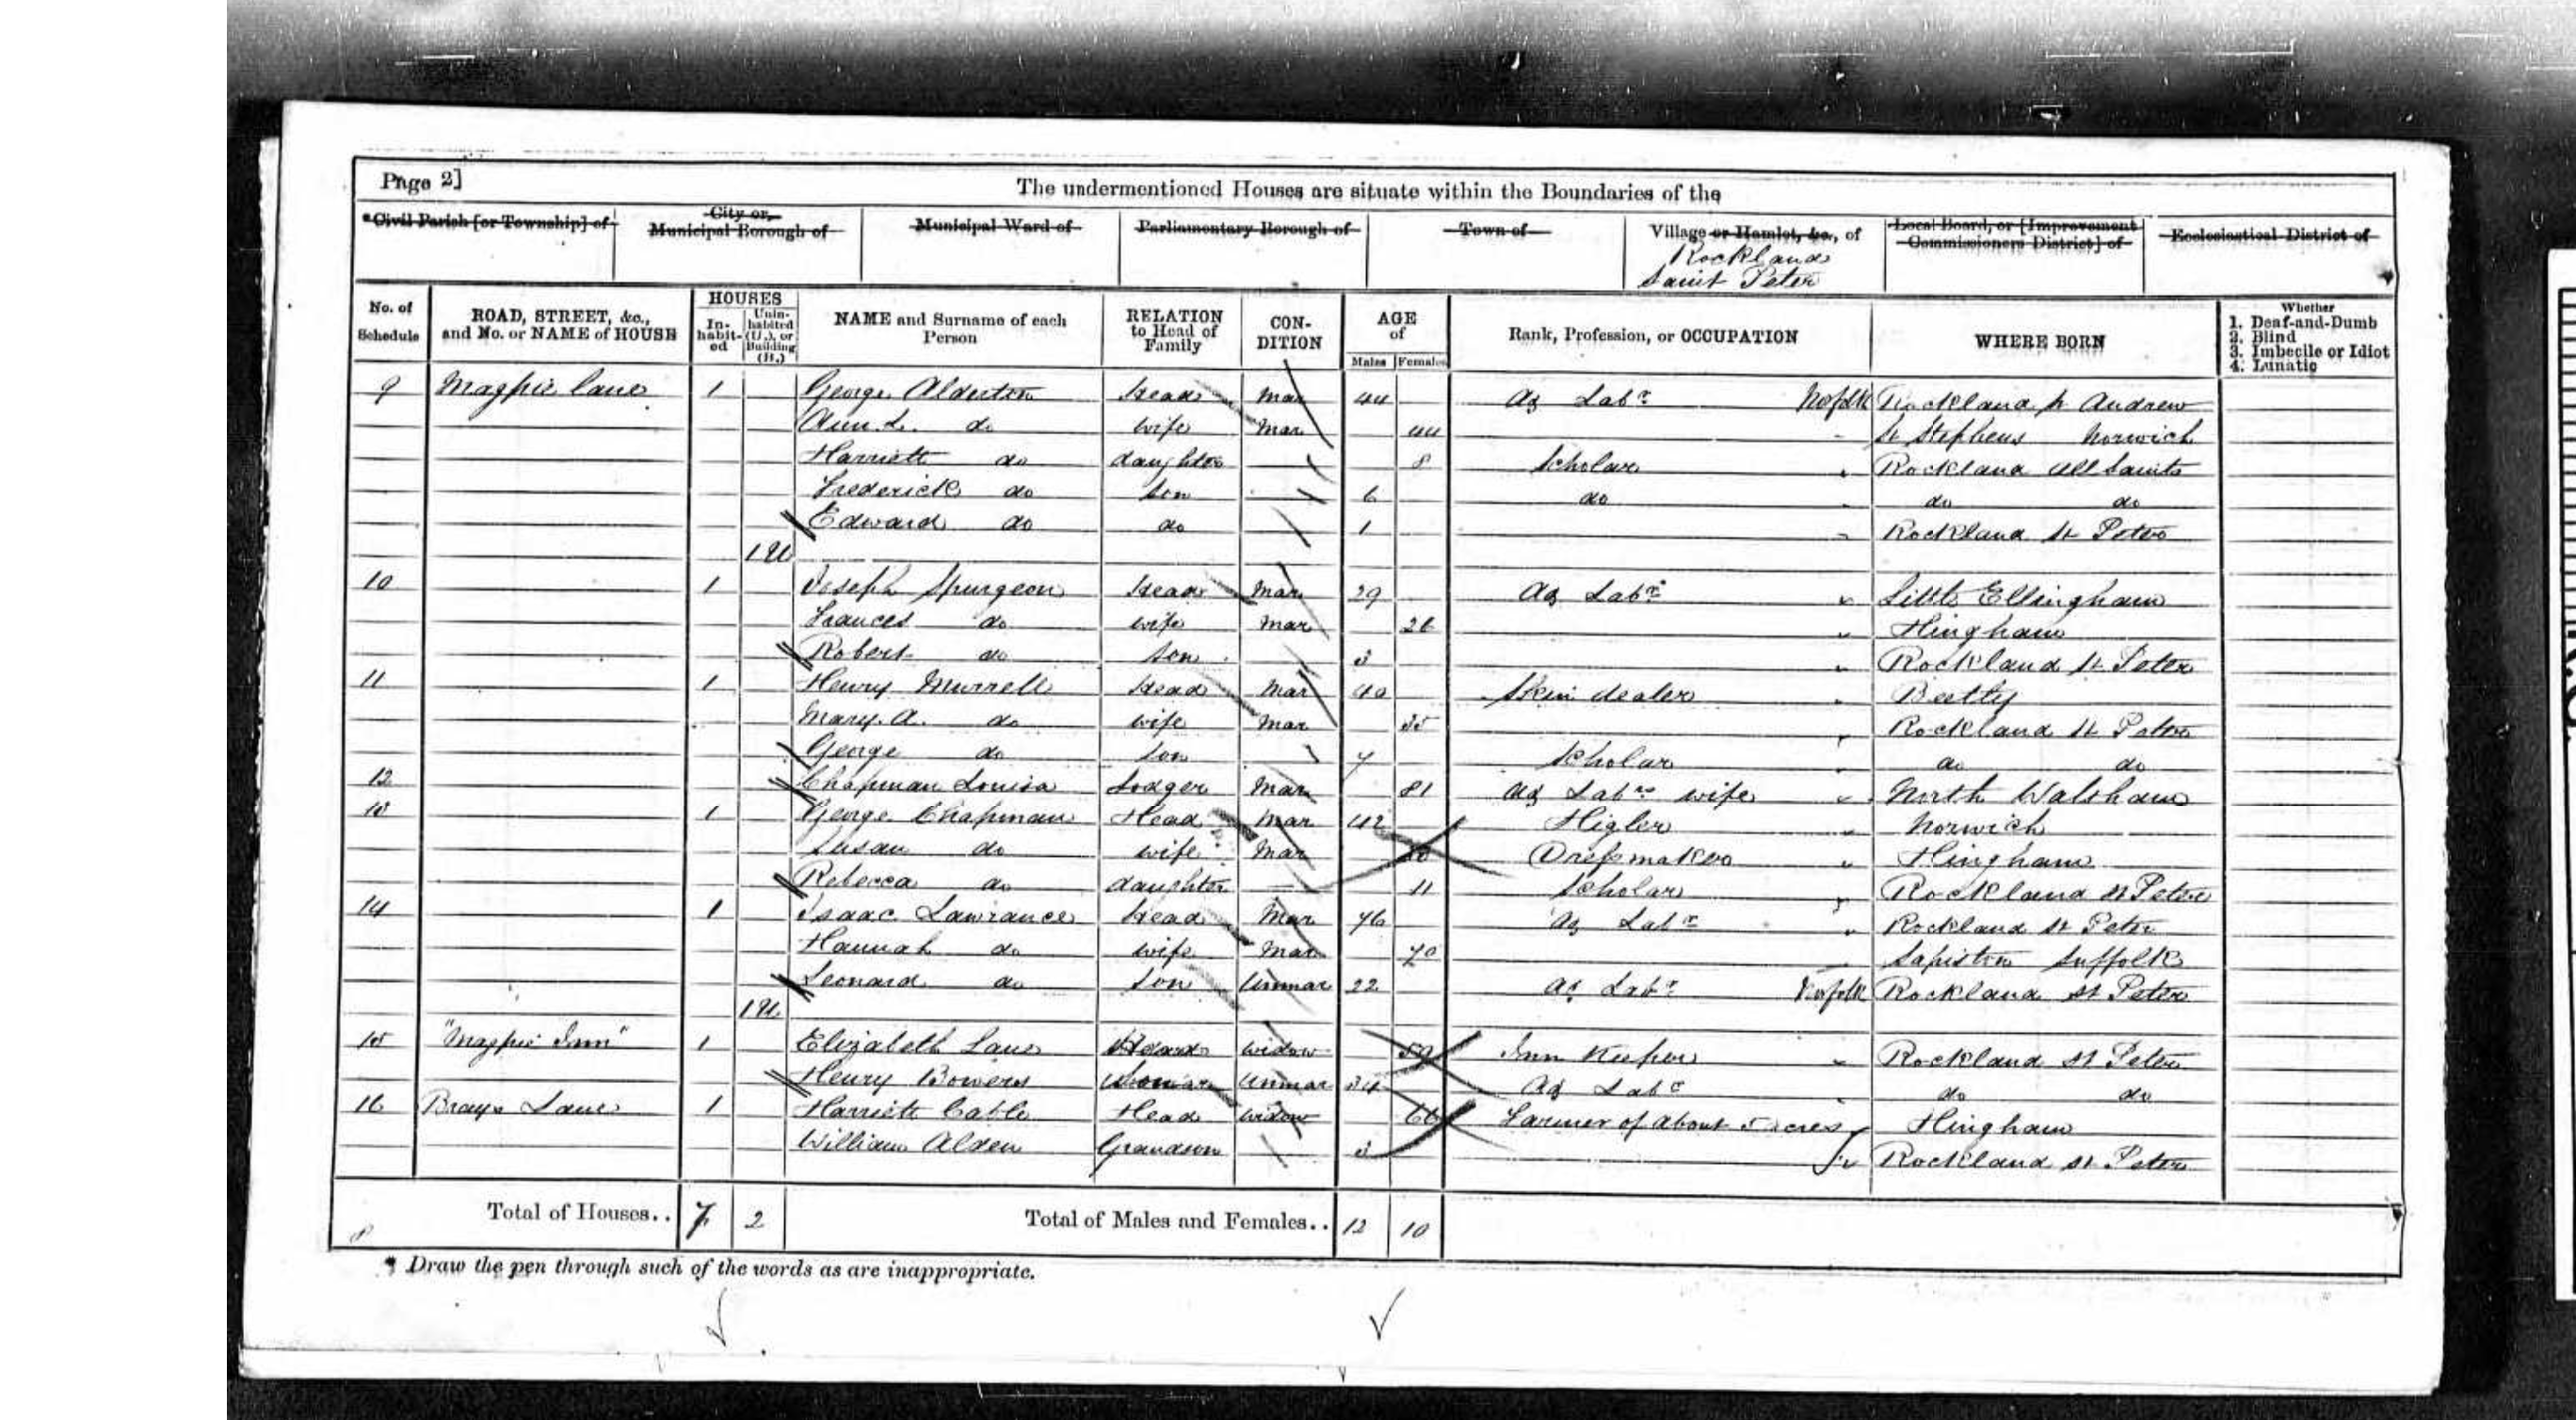 Page 2]
The undermentioned Houses are situate within the Boundaries of the
*Civil Parish [or Township] of City or, Municipal Borough of Municipal Ward of Parliamentary Borough of Town of Village or Hamlet, &c., of Local Board, or [Improvement Commissioners District] of Ecclesiastical District of
Rockland
Saint Peter
No. of Schedule ROAD, STREET, &c., and No. or NAME of HOUSE HOUSES In-habit-ed Unin-habited (U.), or Building (B.) NAME and Surname of each Person RELATION to Head of Family CON-DITION AGE of Males Females Rank, Profession, or OCCUPATION WHERE BORN Whether 1. Deaf-and-Dumb 2. Blind 3. Imbecile or Idiot 4. Lunatic
9 Magpie Lane 1 George Alderton Head Mar 44 Ag Labr Norfolk Rockland St Andrew
Ann L. do wife Mar 44 St Stephens Norwich
Harriett do daughter 8 Scholar Rockland All Saints
Frederick do son 6 do do do
Edward do do 1 Rockland St Peter
1 U
10 1 Joseph Spurgeon Head Mar 29 Ag Labr Little Ellingham
Frances do wife Mar 26 Hingham
Robert do son 3 Rockland St Peter
11 1 Henry Murrell Head Mar 40 Skin dealer Beetly
Mary A. do wife Mar 35 Rockland St Peter
George do son 7 Scholar do do
12 Chapman Louisa Lodger Mar 81 Ag Labrs wife North Walsham
13 1 George Chapman Head Mar 42 Higler Norwich
Susan do wife Mar Dressmaker Hingham
Rebecca do daughter 11 Scholar Rockland St Peter
14 1 Isaac Lawrance Head Mar 76 Ag Labr Rockland St Peter
Hannah do wife Mar 70 Sapiston Suffolk
Leonard do Son Unmar 22 Ag Labr Norfolk Rockland St Peter
1 U
15 "Magpie Inn" 1 Elizabeth Lane Head widow Inn Keeper Rockland St Peter
Henry Bowers Unmar 34 Ag Labr do do
16 Brays Lane 1 Harriett Cable Head widow 66 Farmer of about 5 acres Hingham
William Alden Grandson 3 Rockland St Peter
Total of Houses.. 7 2 Total of Males and Females.. 12 10
* Draw the pen through such of the words as are inappropriate.